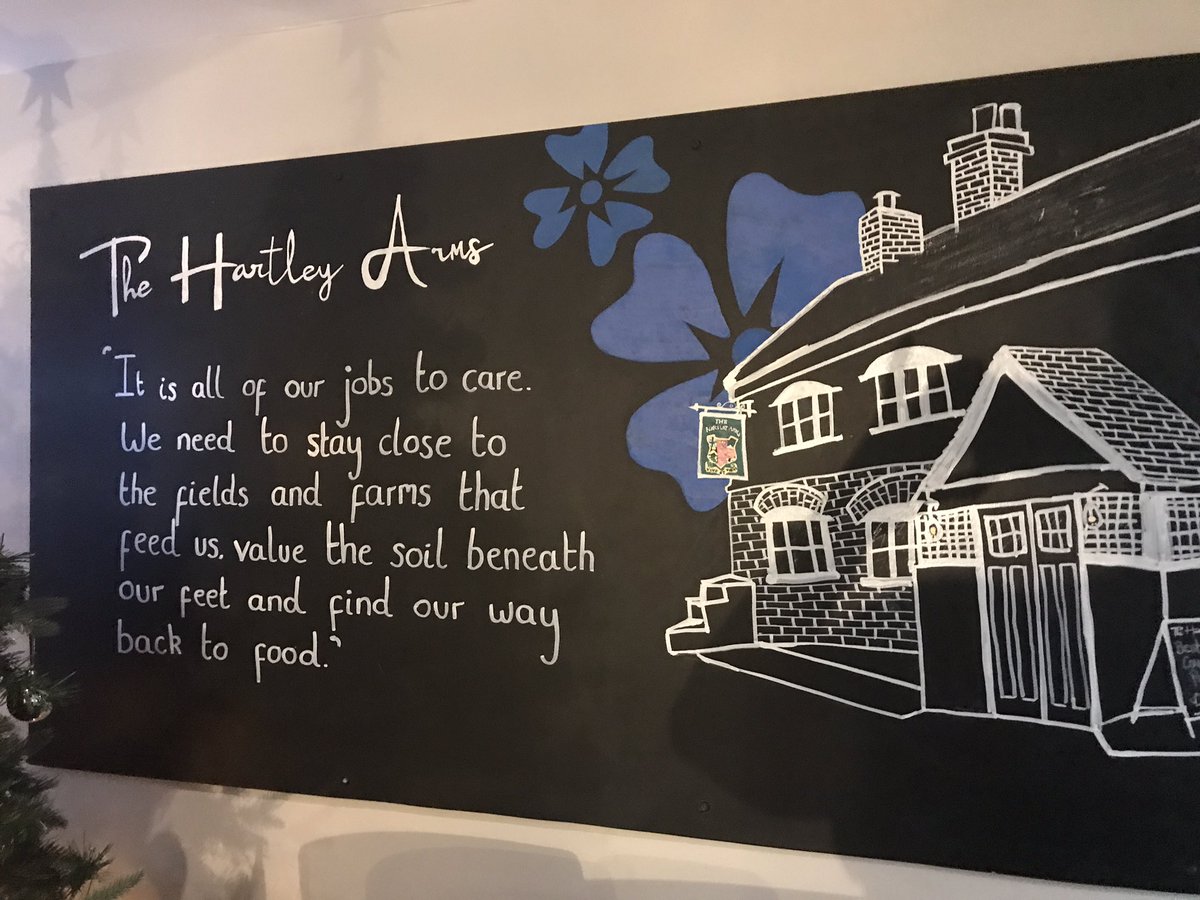 The Hartley Arms
"It is all of our jobs to care.
We need to stay close to
the fields and farms that
feed us, value the soil beneath
our feet and find our way
back to food."
THE